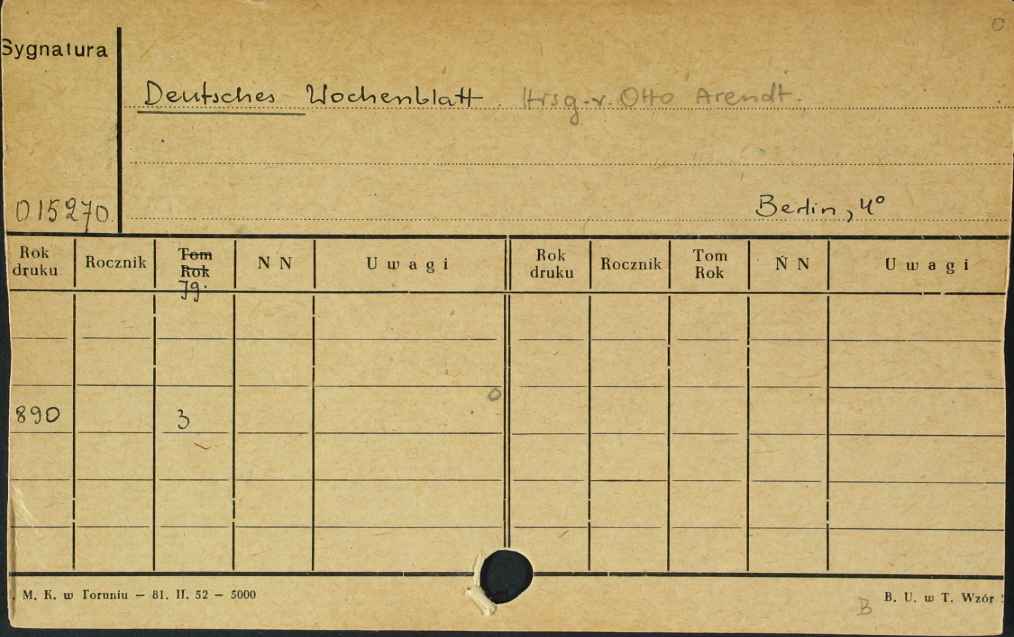 Sygnatura
Deutsches Wochenblatt. Hrsg. v. Otto Arendt.
015270
Berlin, 4°
Rok druku Rocznik Tom Rok Jg. N N Uwagi Rok druku Rocznik Tom Rok N N Uwagi
890 3
M. K. w Toruniu — 81. II. 52 — 5000
B
B. U. w T. Wzór